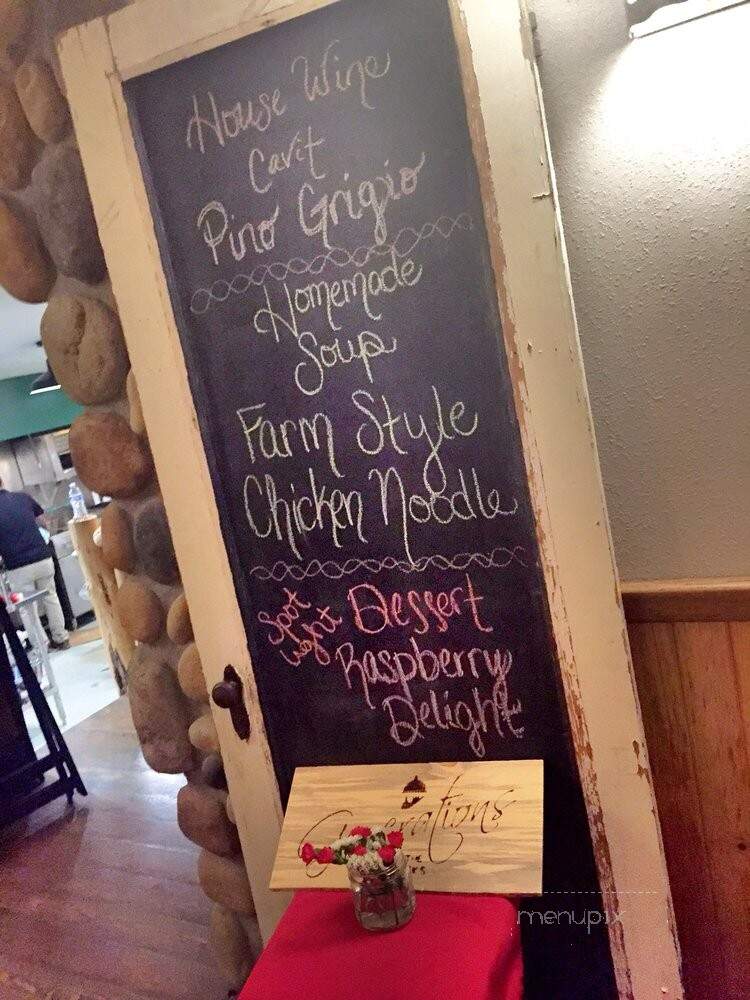 House Wine
Cavit
Pino Grigio
Homemade
Soup
Farm Style
Chicken Noodle
Spot Light Dessert
Raspberry
Delight
Generations
menupix